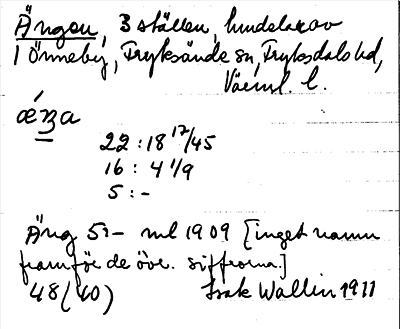 Ängen, 3 ställen, lindelar av
1 Önneby, Fryksände sn, Fryksdals hd,
Värml. l.
ǽŋa
22:18 17/45
16: 4 1/9
5:-
Äng 5:- ml 1909 [inget namn
framför de öv. siffrorna.]
48(40) Isak Wallin 1911